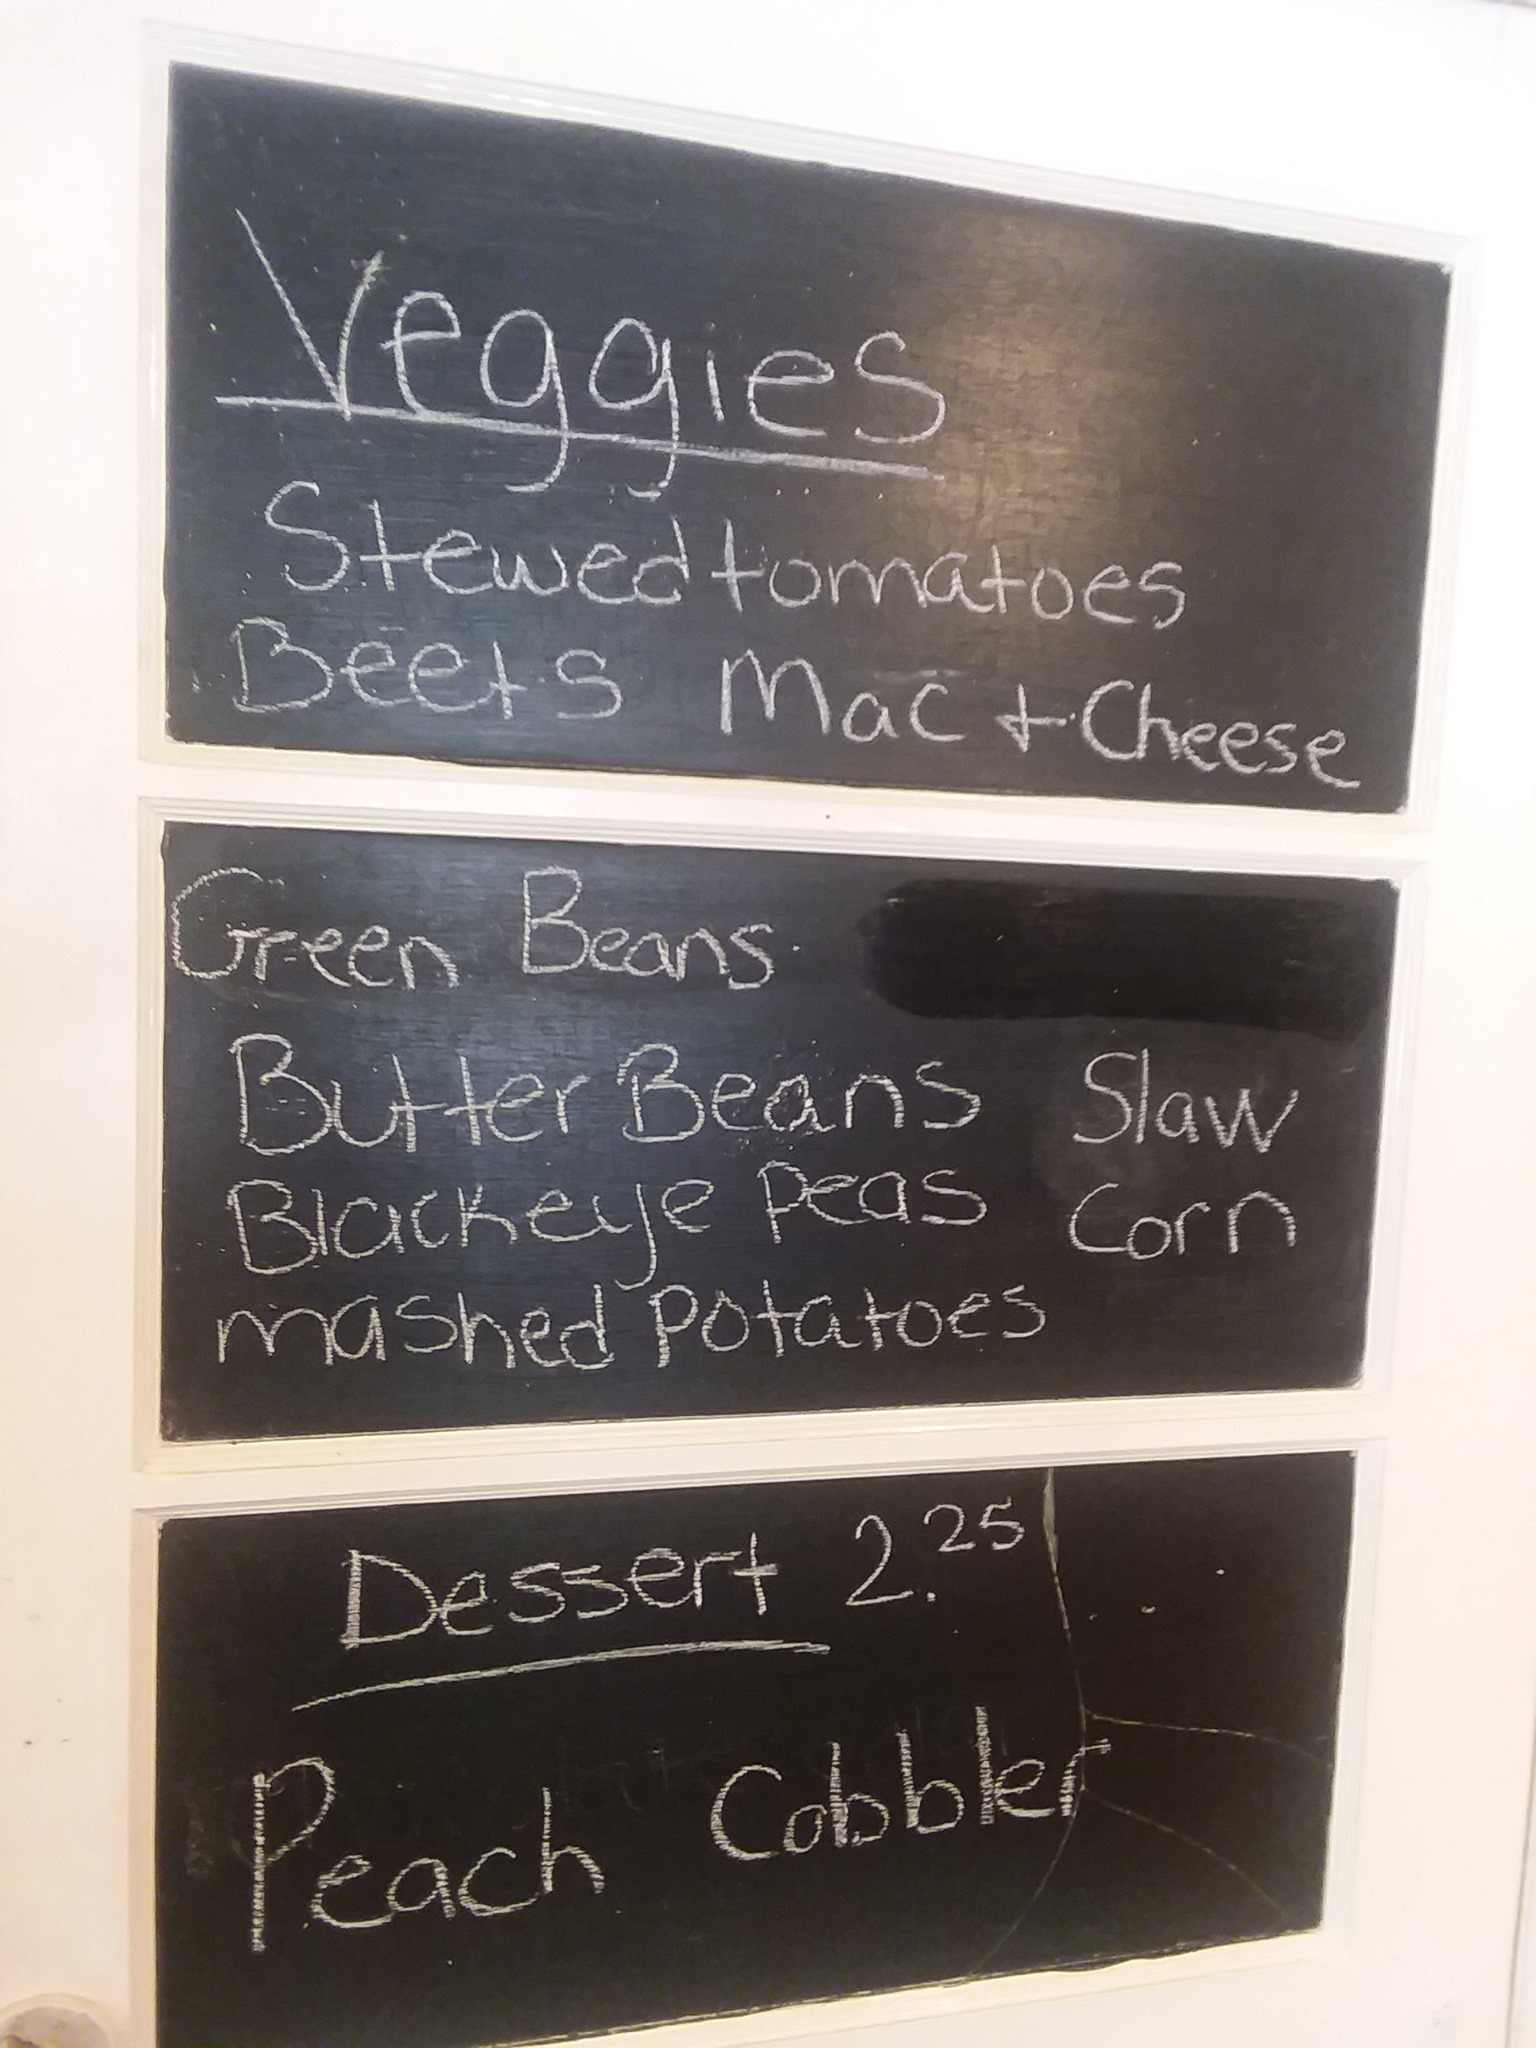 Veggies
Stewed tomatoes
Beets Mac + Cheese
Green Beans
Butter Beans Slaw
Blackeye Peas Corn
mashed potatoes
Dessert 2.25
Peach Cobbler